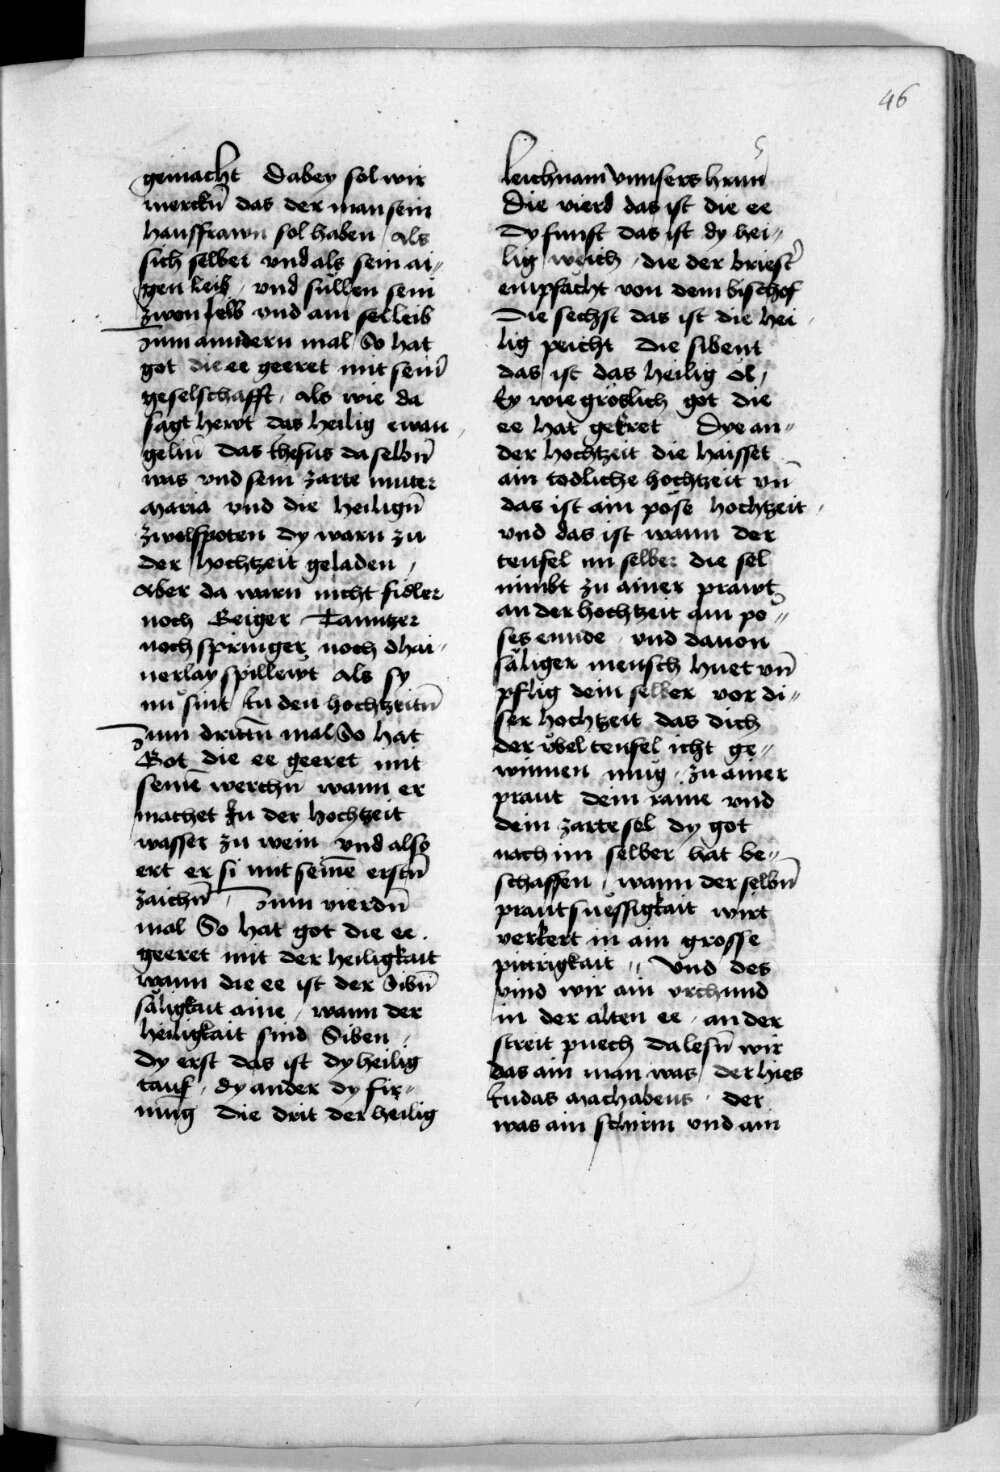 46
gemacht Dabey sol wir
merckn̄ das der man sein
hausfrawn sol haben / als
sich selber vnd als sein ai⸗
gen leib / vnd sullen sein
zwen selb vnd ain sel leib
Zum anndern mal So hat
got die ee geeret mit sein̄
geselschafft / als wie da
sagt hewt das heilig ewan
gelin̄ das ihesus da selbn̄
was vnd sein zarte muter
Maria vnd die heilign̄
zwelfpoten dy warn zu
der hochtzeit geladen /
Aber da warn nicht fidler
noch Geiger Tanntzer
noch springer noch dhai⸗
nerlay spillewt als sy
nu sint in den hochtzeitn̄
Zum dritn̄ mal So hat
Got die ee geeret mit
seinē werchn̄ wann er
machet in der hochtzeit
wasser zu wein vnd also
ert er si mit seinē erstn̄
zaichn̄ / Zum vierdn̄
mal So hat got die ee
geeret mit der heiligkait
wann die ee ist der Sibn̄
säligkait aine / wann der
heiligkait sind Siben /
dy erst das ist dy heilig
tauf / dy ander dy fir⸗
mūg die drit der heilig
leichnam vnnsers hrnn̄
Die vierd das ist die ee
dy funft das ist dy hei⸗
lig weich / die der briest̄
empfächt von dem bischof
Die sechst das ist die hei
lig peicht die sibent
das ist das heilig öl /
Ey wie gröslich got die
ee hat geeret Dye an⸗
der hochtzeit die haisset
ain todliche hochtzeit vn̄
das ist ain pöse hochtzeit /
vnd das ist wann der
teufel im selber die sel
nimbt zu ainer prawt
an der hochtzeit ain pö⸗
ses ennde / vnd dauon
säliger mensch huet vn̄
pflig dein selber vor di⸗
ser hochtzeit das dich
der vbel teufel icht ge⸗
winnen mug / zu ainer
praut dein raine vnd
dein zarte sel dy got
nach im selber hat be⸗
schaffen / wann der selbn̄
praut suessigkait wirt
verkert in ain grosse
pittrigkait // Vnd des
vind wir ain vrchund
in der alten ee / an der
streit puech da lesn̄ wir
das ain man was / der hies
Iudas Machabeus / der
was ain schirm vnd ain